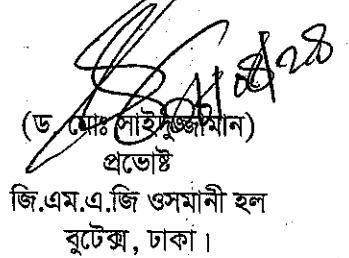 (ড. মোঃ সাইদুজ্জামান)
প্রভোষ্ট
জি.এম.এ.জি ওসমানী হল
বুটেক্স, ঢাকা।